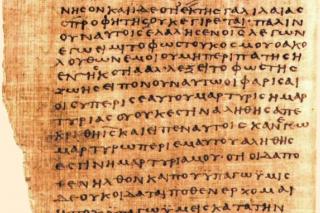 ΝΗϹΟΝΚΑΙΙΔΕΟΤΙΕΚΤΗϹΓΑΛΙΛΑΙΑϹ
ΟΠΡΟΦΗΤΗϹΟΥΚΕΓΙΡΕΤΑΙ· ΠΑΛΙΝ
ΟΥΝΑΥΤΟΙϹΕΛΑΛΗϹΕΝΟΙϹΛΕΓΩΝ
ΕΓΩΕΙΜΙΤΟΦΩϹΤΟΥΚΟϹΜΟΥΟΑΚΟ
ΛΟΥΘΩΝΕΜΟΙΟΥΜΗΠΕΡΙΠΑΤΗϹΗ
ΕΝΤΗϹΚΟΤΙΑΑΛΛΕΞΕΙΤΟΦΩϹΤΗϹ
ΖΩΗϹΕΙΠΟΝΟΥΝΑΥΤΩΟΙΦΑΡΙϹΑΙ
ΟΙϹΥΠΕΡΙϹΕΑΥΤΟΥΜΑΡΤΥΡΙϹΗΜΑΡ
ΤΥΡΙΑϹΟΥΟΥΚΕϹΤΙΝΑΛΗΘΗϹΑΠΕ
ΚΡΙΘΗΙϹΚΑΙΕΙΠΕΝΑΥΤΟΙϹΚΑΝΕΓΩ
ΜΑΡΤΥΡΩΠΕΡΙΕΜΑΥΤΟΥΑΛΗΘΗϹ
ΕϹΤΙΝΗΜΑΡΤΥΡΙΑΜΟΥ·ΟΤΙΟΙΔΑΠΟ
ΘΕΝΗΛΘΟΝΚΑΙΠΟΥΥΠΑΓΩΫΜΙϹ
ΔΕΟΥΚΟΙΔΑΤΑΙΠΟΘΕΝΕΡΧΟΜΑΙ